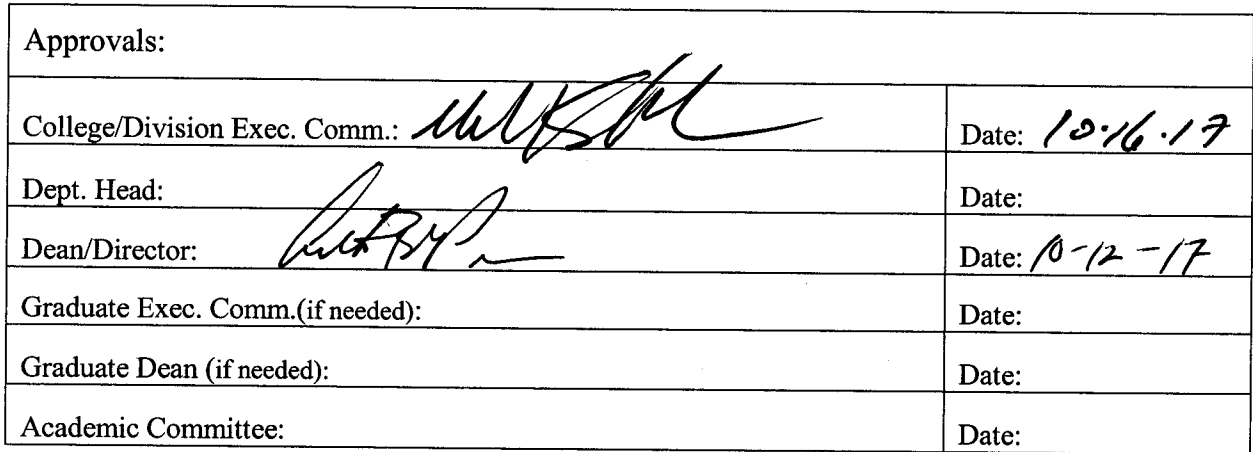 Approvals:
College/Division Exec. Comm.: Date: 10·16·17
Dept. Head: Date:
Dean/Director: Date: 10-12-17
Graduate Exec. Comm.(if needed): Date:
Graduate Dean (if needed): Date:
Academic Committee: Date: